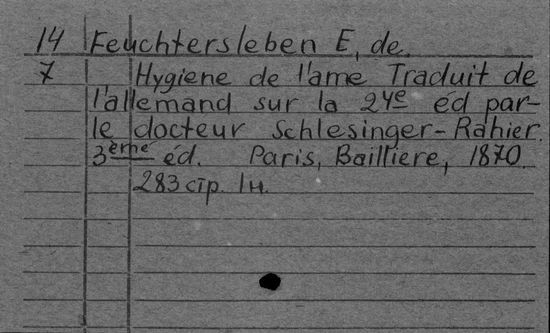 14 Feuchtersleben E, de.
7 Hygiene de l'ame Traduit de
l'allemand sur la 24e éd par-
le docteur Schlesinger-Rahier.
3ème éd. Paris, Bailliere, 1870.
283 стр. 1н.